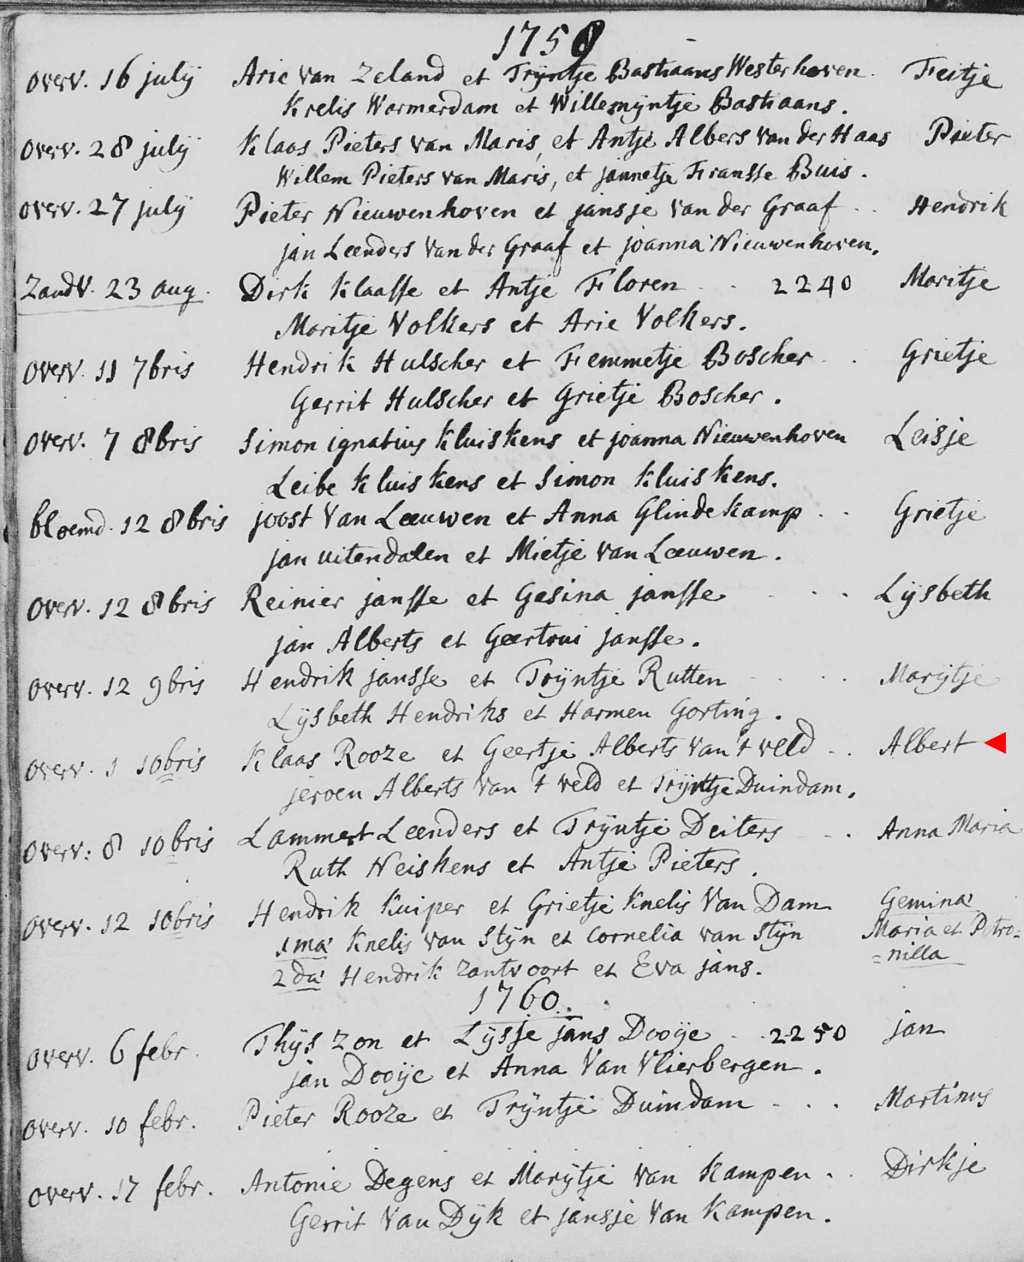 1759
overv. 16 julij Arie van Zeland et Trijntje Bastiaans Westerhoven. Feitje
Krelis Warmerdam et Willemijntje Bastiaans.
overv. 28 julij Klaas Pieters van Maris, et Antje Albers van der Haas Pieter
Willem Pieters van Maris, et jannetje Fransse Buis.
overv. 27 julij Pieter Nieuwenhoven et jansje van der Graaf . . Hendrik
jan Leenders van der Graaf et joanna Nieuwenhoven.
Zandv. 23 aug. Dirk Klaasse et Antje Floren . . 2240 Maritje
Maritje Volkers et Arie Volkers.
overv. 11 7bris Hendrik Hulscher et Femmetje Boscher . . Grietje
Gerrit Hulscher et Grietje Boscher.
overv. 7 8bris Simon ignatius Kluiskens et joanna Nieuwenhoven Leisje
Leibe Kluiskens et Simon Kluiskens.
bloemd. 12 8bris joost Van Leeuwen et Anna Glindekamp . . Grietje
jan uitendalen et Mietje van Leeuwen.
overv. 12 8bris Reinier jansse et Gesina jansse . . . Lijsbeth
jan Alberts et Geertrui jansse.
overv. 12 9bris Hendrik jansse et Trijntje Rutten . . . . Marijtje
Lijsbeth Hendriks et Harmen Gorting.
overv. 1 10bris Klaas Rooze et Geertje Alberts van 't veld . . Albert
jeroen Alberts van 't veld et Trijntje Duindam.
overv. 8 10bris Lammert Leenders et Trijntje Deiters . . Anna Maria
Ruth Neiskens et Antje Pieters.
overv. 12 10bris Hendrik Kuiper et Grietje Knelis Van Dam Gemina
1ma Knelis van Stijn et Cornelia van Stijn Maria et Petro-
2da Hendrik Zantvoort et Eva jans. =nilla
1760.
overv. 6 febr. Thijs Zon et Lijsje jans Dooije . . 2250 jan
jan Dooije et Anna Van Vlierbergen.
overv. 10 febr. Pieter Rooze et Trijntje Duindam . . . Martinus
overv. 17 febr. Antonie Degens et Marijtje van Kampen . . Dirkje
Gerrit Van Dijk et jansje van Kampen.